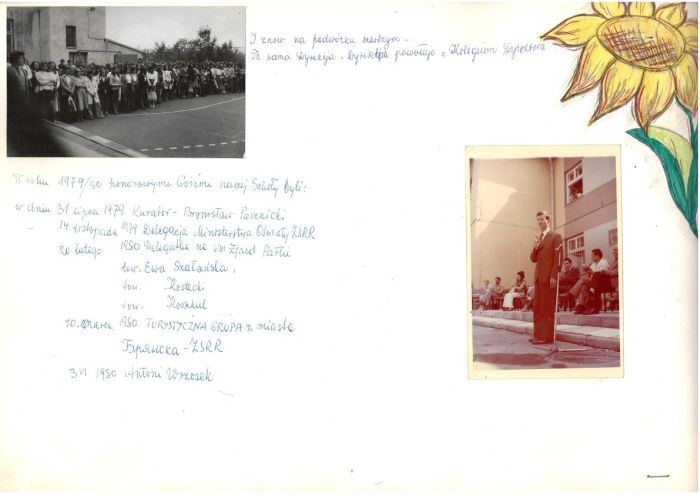 I znów na podwórku szkolnym -
Ta sama Dyrekcja. Dyrektor powołuje "Kolegium Dyrektora
W roku 1979/80 honorowymi Gośćmi naszej Szkoły byli:
w dniu 31 lipca 1979 Kurator - Bronisław
14 listopada 1979 Delegacja Ministerstwa Oświaty ZSRR
20 lutego 1980 Delegatka na VIII Zjazd Partii
tow. Ewa Szałańska,
tow. Kostecki
tow.
10. marca 1980 TURYSTYCZNA GRUPA z miasta
Брянска - ZSRR
3 VI 1980 Antoni Wrzosek